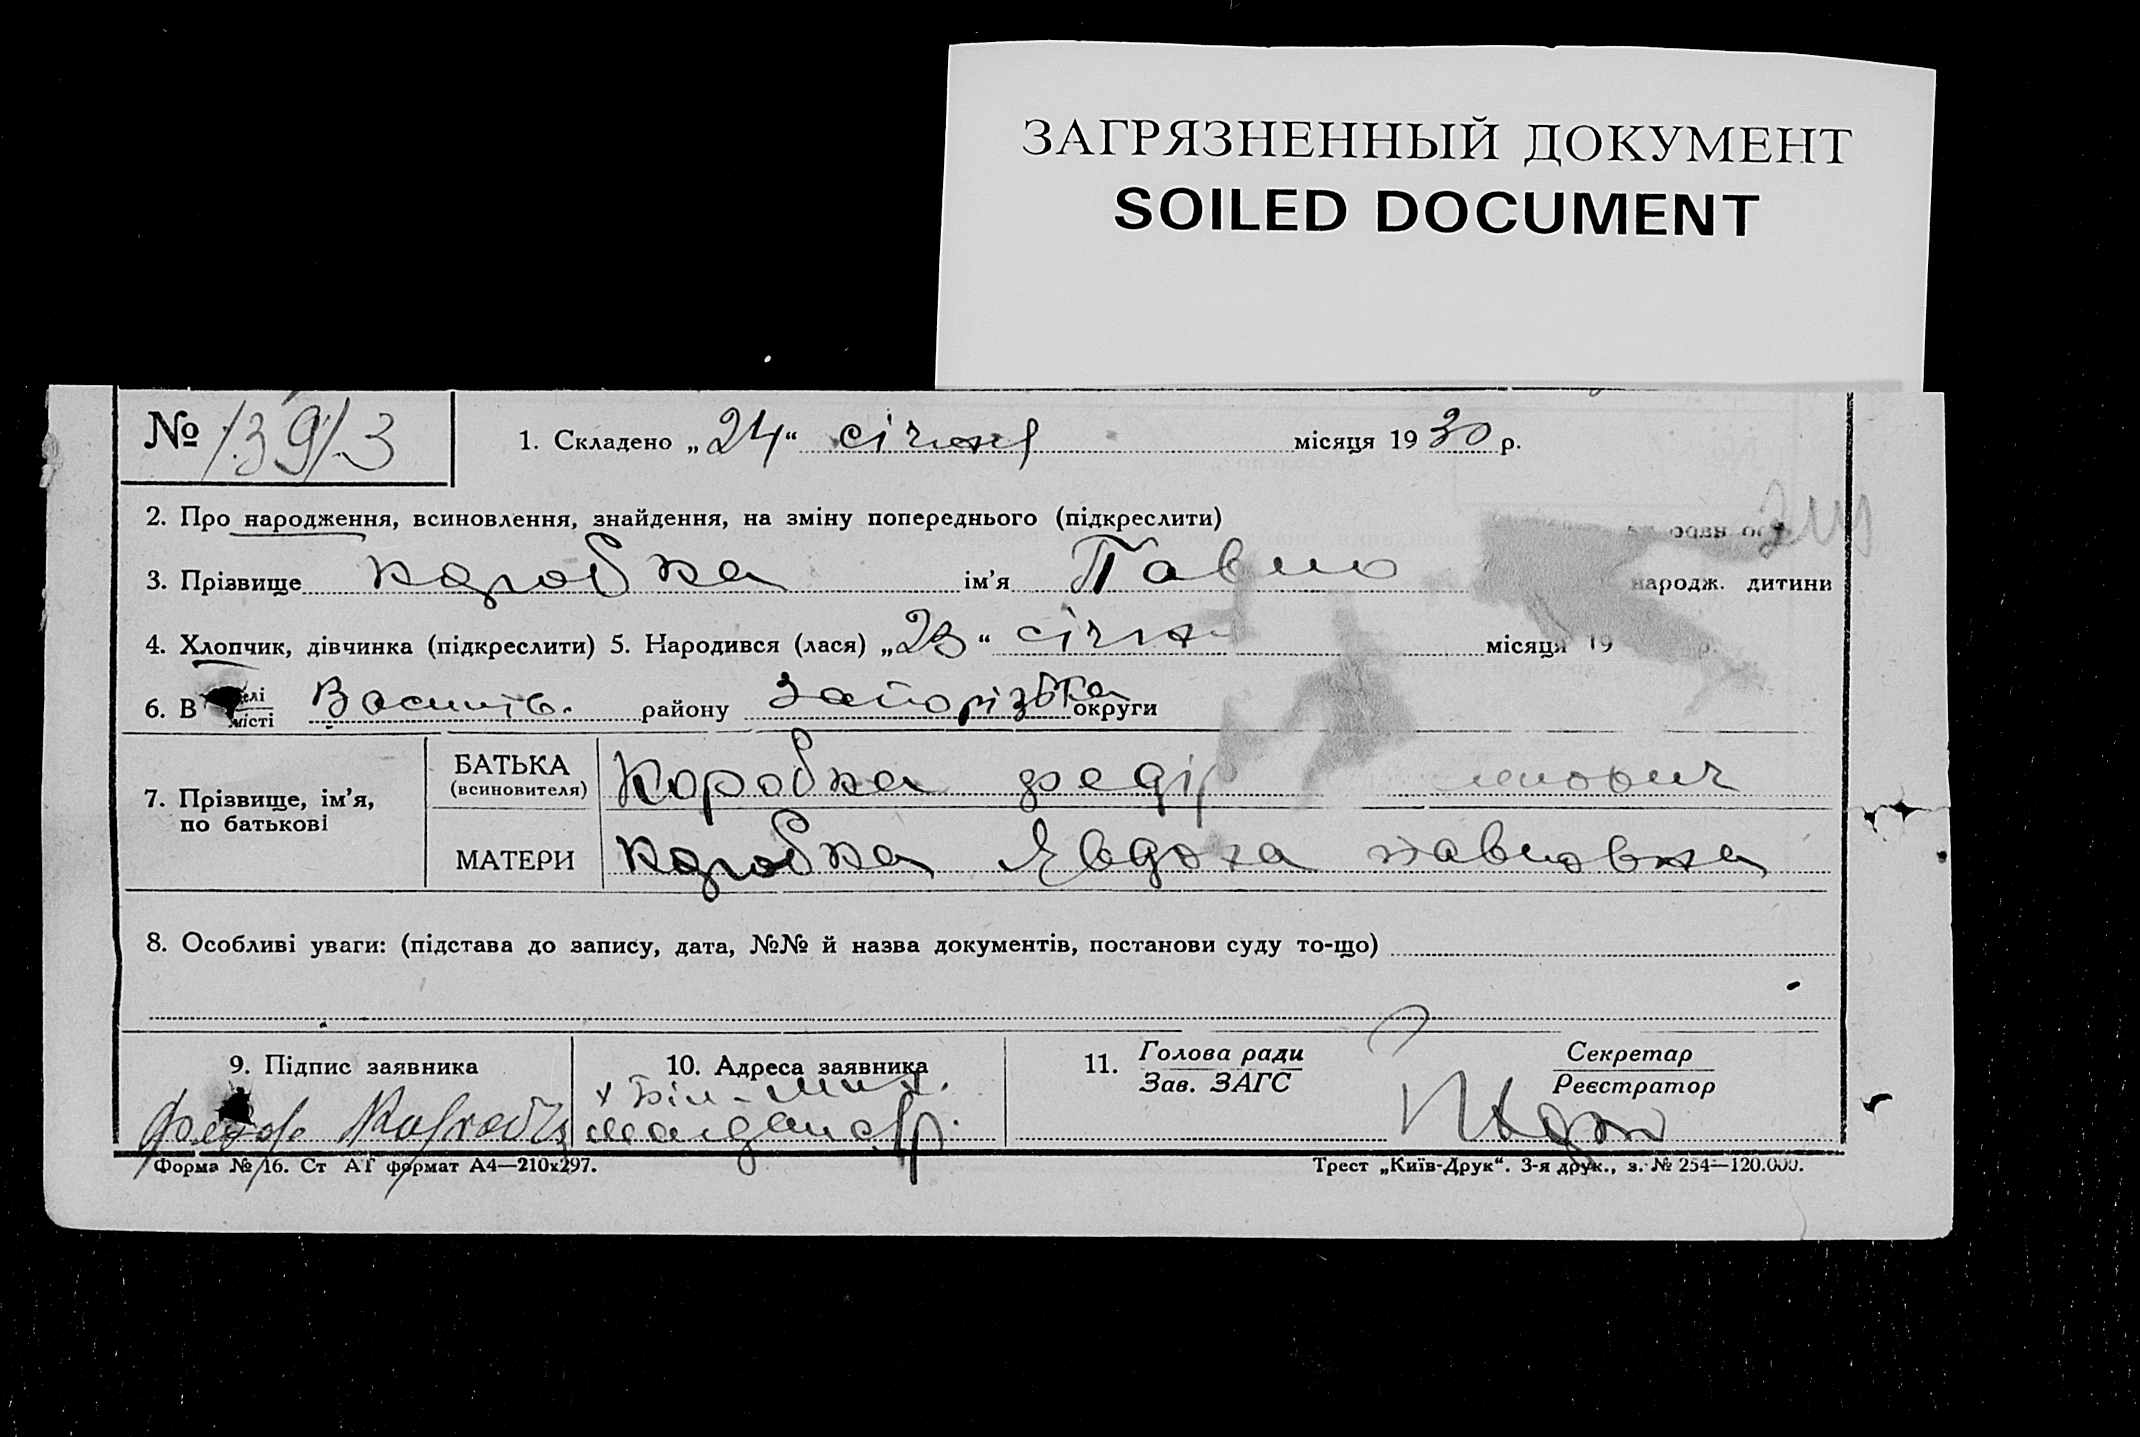 ЗАГРЯЗНЕННЫЙ ДОКУМЕНТ
SOILED DOCUMENT
№ 139/3
1. Складено „24“ січня місяця 1930 р.
2. Про народження, всиновлення, знайдення, на зміну попереднього (підкреслити)
3. Прізвище Коробка ім’я Павло народж. дитини
4. Хлопчик, дівчинка (підкреслити) 5. Народився (лася) „23“ січня місяця 19 р.
6. В селі місті Василів. району Запорізька округи
7. Прізвище, ім’я, по батькові
БАТЬКА (всиновителя) Коробка Федір
МАТЕРИ Коробка Явдоха Павловна
8. Особливі уваги: (підстава до запису, дата, №№ й назва документів, постанови суду то-що)
9. Підпис заявника
10. Адреса заявника
11. Голова ради Зав. ЗАГС
Секретар Реєстратор
Форма № 16. Ст АГ формат А4—210х297.
Трест „Київ-Друк“. 3-я друк., з. № 254—120.000.